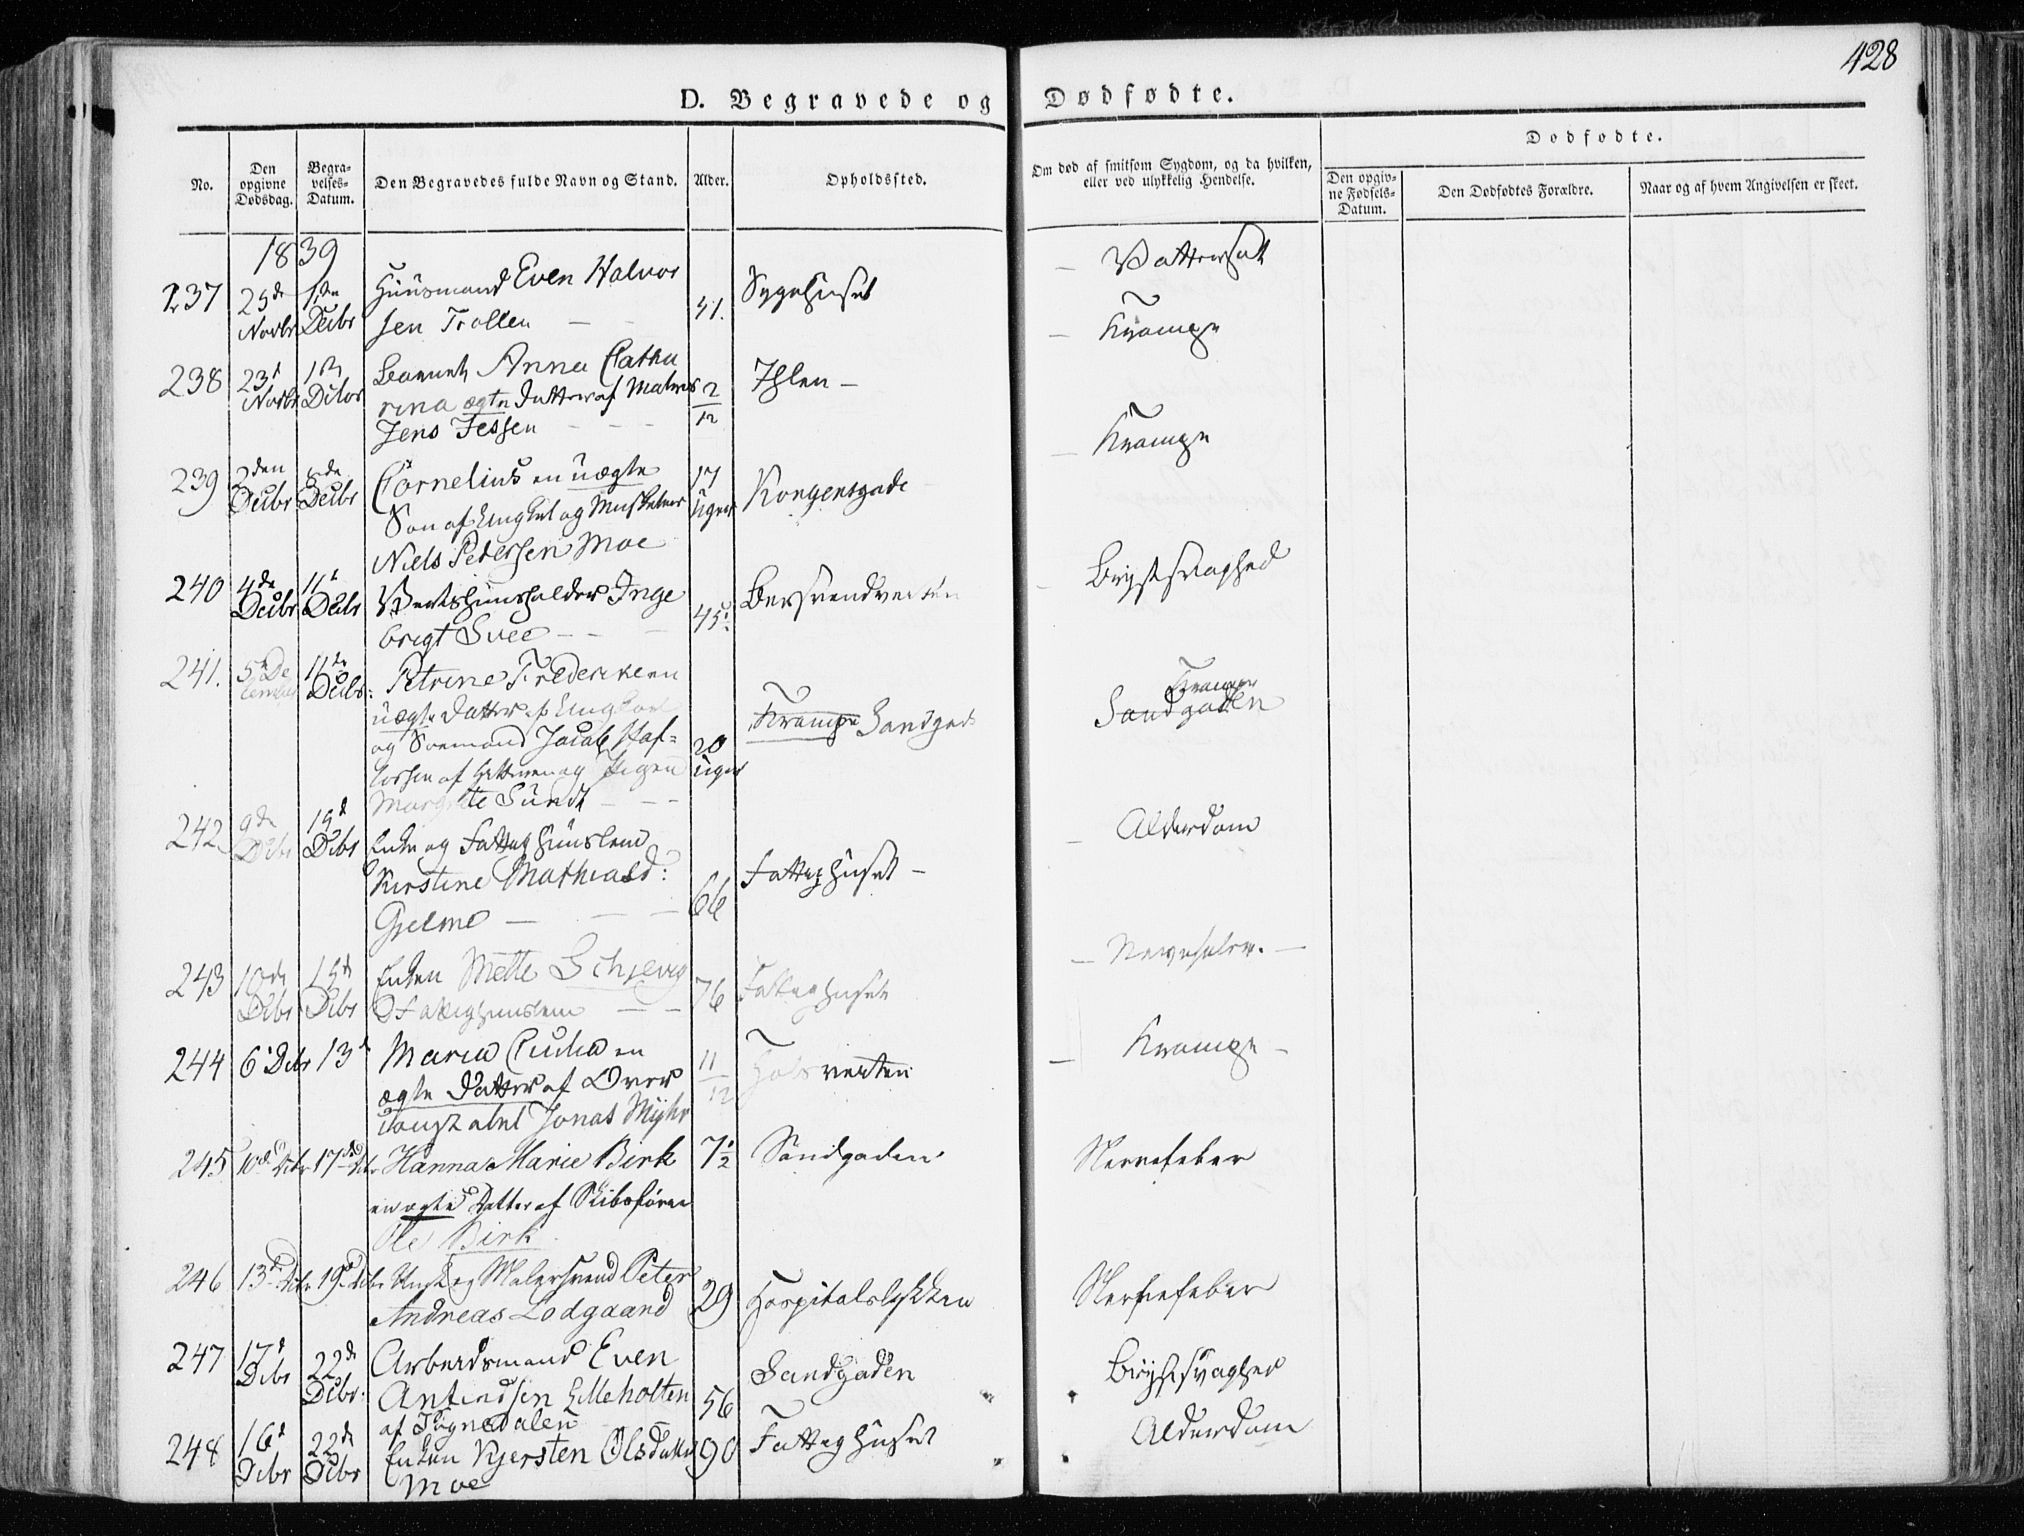 428
D. Begravede og Dødfødte.
No.
Den opgivne Dødsdag.
Begra-velses-Datum.
Den Begravedes fulde Navn og Stand.
Alder.
Opholdssted.
Om død af smitsom Sygdom, og da hvilken, eller ved ulykkelig Hendelse.
Dødfødte.
Den opgiv-ne Fødsels-Datum.
Den Dødfødtes Forældre.
Naar og af hvem Angivelsen er skeet.
1839
237 25de Novbr 1ste Decbr Huusmand Even Halvor
sen Trollen — — 51. Sygehuset — Vattersot
238 23de Novbr 1ste Decbr Barnet Anna Catha
rina ægte Datter af Matros
Jens Jessen — — 2/12 Ihlen — — Krampe
239 2den Decbr 8de Decbr Cornelius en uægte
Søn af Ungkarl og Musketeer
Niels Pedersen Moe 17 Uger Kongensgade — Krampe
240 4de Decbr 11te Decbr Vertshuusholder Inge
brigt Svee — — 45 — Brystsvaghed
241. 5te December 11te Decbr: Petrine Frederike en
uægte Datter af Ungkarl
og Sømand Jacob Haf=
torsen af Hitteren og Pigen
Margrete Sundt — — 20 Uger Krampe Sandgad Krampe Sandgaden
242. 9de Decbr 15de Decbr Enke og Fattighuuslem
Kirstine Mathiasd:
Gjelme — — — 66 Fattighuset — — Alderdom
243 10de Decbr 15de Decbr Enken Mette Schjevig
Fattighuuslem — — 76 Fattighuset — Nervefeber. —
244 6te Decbr 13de Maria Cicilia en
ægte Datter af Over
Jonas Myhr 11/12 — Krampe —
245 10de Decbr 17de Decbr Hanna Marie Birk
en ægte Datter af Skibsfører
Ole Birk 7½ Sandgaden Nervefeber
246 13de Decbr 19de Decbr Ungk. og Malersvend Peter
Andreas Lodgaard 29 Hospitalsløkken Nervefeber
247 17de Decbr 22de Decbr: Arbeidsmand Even
Antindsen Gilleholten
af Sognedalen 56 Sandgaden Brystsvaghed
248 16de Decbr 22de Decbr Enken Kjersten Olsdatter
Moe 90 Fattighuset Alderdom